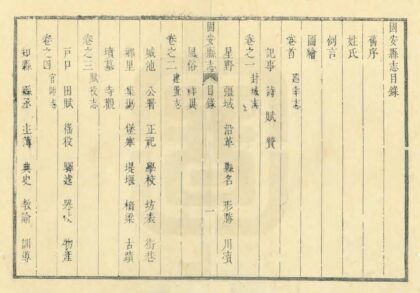 固安縣志目錄
舊序
姓氏
例言
圖繪
卷首 巡幸志
記事 詩 賦 贊
卷之一 封域志
星野 疆域 沿革 縣名 形勝 川瀆
固安縣志 目錄 一
風俗 祥異
卷之二 建置志
城池 公署 正祀 學校 坊表 街巷
鄉里 集鎮 保寨 堤堰 橋梁 古蹟
墳墓 寺觀
卷之三 賦役志
戶口 田賦 徭役 驛遞 物產
卷之四 官師志
知縣 縣丞 主簿 典史 教諭 訓導